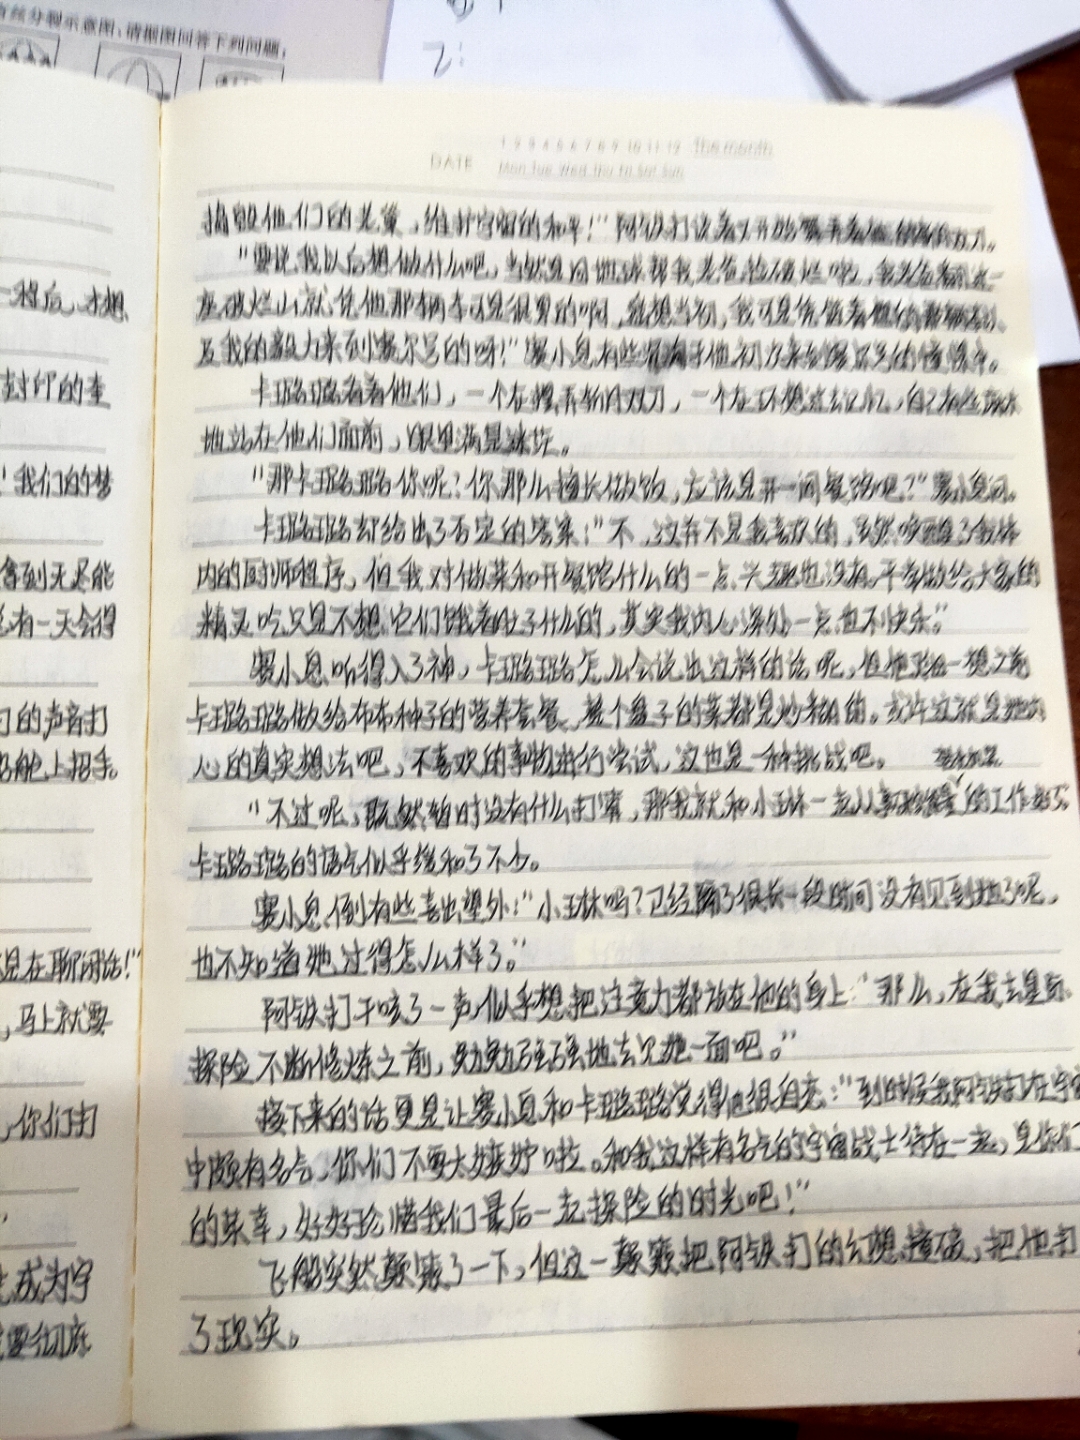 丝分裂示意图,请据图回答下列问题,
DATE
1 2 3 4 5 6 7 8 9 10 11 12 The month
Mon Tue Wed Thu Fri Sat Sun
捣毁他们的老巢,维护宇宙的和平!"阿铁打说着又开始
"要说我以后想做什么吧,当然是回地球帮我老爸捡破烂啦,我老爸
座破烂山就凭他那辆车可是很累的啊,想当初,我可是凭借着
及我的毅力来到赛尔号的呀!"赛小息有些 于他初次来到赛尔号的憧憬中。
卡璐璐看着他们,一个在摆弄 双刀,一个在环想过去记忆,自己有些
地站在他们面前,眼里满是迷茫。
"那卡璐璐你呢?你那么擅长做饭,应该是开一间餐馆吧?"赛小息问。
卡璐璐却给出了否定的答案:"不,这并不是我喜欢的,虽然唤醒了我体
内的厨师程序,但我对做菜和开餐馆什么的一点兴趣也没有。平常做给大家的
精灵吃只是不想它们饿着肚子什么的,其实我内心深处一点也不快乐。"
赛小息听得入了神,卡璐璐怎么会说出这样的话呢,但他 一想之前
卡璐璐做给布布种子的营养套餐,整个盘子的菜都是炒糊的。或许这就是她内
心的真实想法吧,不喜欢的事物进行尝试,这也是一种挑战吧。
"不过呢,既然暂时没有什么打算,那我就和小玉林一起从事 的工作好了。
卡璐璐的语气似乎缓和了不少。
赛小息倒有些喜出望外:"小玉林吗?已经隔了很长一段时间没有见到她了呢,
也不知道她过得怎么样了。"
阿铁打干咳了一声,似乎想把注意力都放在他的身上:"那么,在我去星际
探险不断修炼之前,勉勉强强地去见她一面吧。"
接下来的话更是让赛小息和卡璐璐觉得他很自恋:"到时候我阿铁打在宇宙
中颇有名气,你们不要太嫉妒啦。和我这样有名气的宇宙战士待在一起,是你们
的荣幸,好好珍惜我们最后一起探险的时光吧!"
飞船突然颠簸了一下,但这一颠簸把阿铁打的幻想撞破,把他打
了现实。
一秒后,才想
封印的圭
!我们的梦
拿到无尽能
有一天会得
的声音打
船舱上招手。
是在聊闲话!"
,马上就要
,你们打
成为宇
要彻底